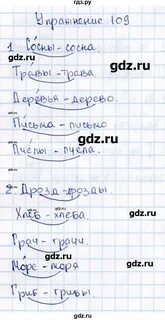 гдз.ру
Упражнение 109
1. Сосны - сосна.
Травы - трава.
Деревья - дерево.
Письма - письмо
Пчёлы - пчела.
2 - Дрозд - дрозды.
Хлеб - хлеба
Грач - грачи
Море - моря
Гриб - грибы.
gdz.ru
gdz.ru
gdz.ru
gdz.ru
gdz.ru
gdz.ru
gdz.ru
gdz.ru